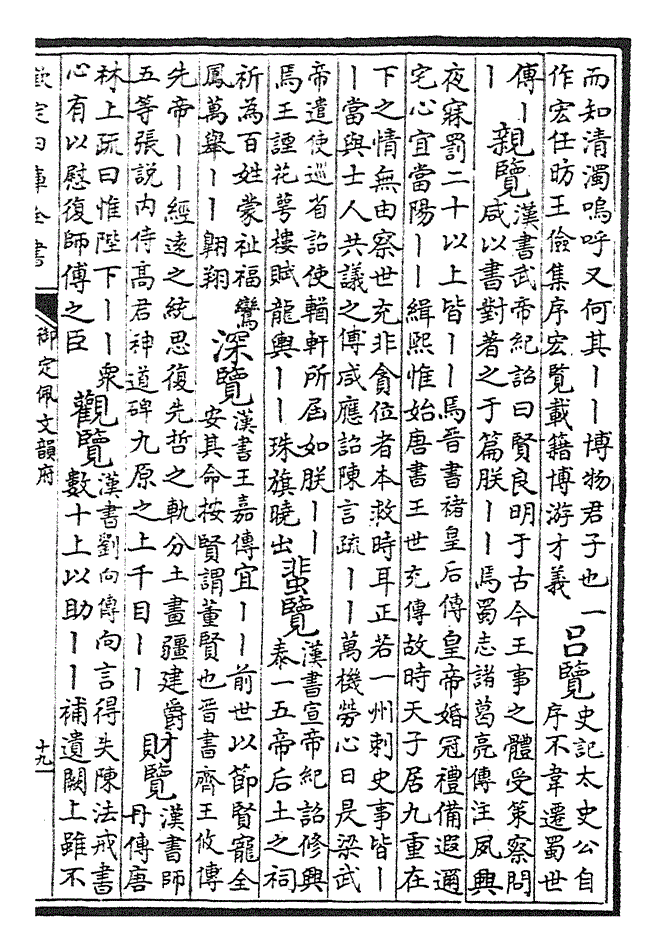 而知清濁嗚呼又何其丨丨博物君子也一
作宏任昉王儉集序宏覽載籍博游才義
呂覽
史記太史公自
序不韋遷蜀世
傳丨
丨
親覽
漢書武帝紀詔曰賢良明于古今王事之體受策察問
咸以書對著之于篇朕丨丨焉蜀志諸葛亮傳注夙興
夜寐罰二十以上皆丨丨焉晉書褚皇后傳皇帝婚冠禮備遐邇
宅心宜當陽丨丨緝熙惟始唐書王世充傳故時天子居九重在
下之情無由察世充非貪位者本救時耳正若一州刺史事皆丨
丨當與士人共議之傅咸應詔陳言疏丨丨萬機勞心日昃梁武
帝遣使巡省詔使輶軒所屆如朕丨丨
焉王諲花萼樓賦龍輿丨丨珠旗曉出
蜚覽
漢書宣帝紀詔修興
泰一五帝后土之祠
祈為百姓蒙祉福鸞
鳳萬舉丨丨翺翔
深覽
漢書王嘉傳宜丨丨前世以節賢寵全
安其命按賢謂董賢也晉書齊王攸傳
先帝丨丨經遠之統思復先哲之軌分土畫疆建爵
五等張説内侍髙君神道碑九原之上千目丨丨
財覽
漢書師
丹傳唐
林上疏曰惟陛下丨丨衆
心有以慰復師傅之臣
觀覽
漢書劉向傳向言得失陳法戒書
數十上以助丨丨補遺闕上雖不
欽定四庫全書
御定佩文韻府
十九